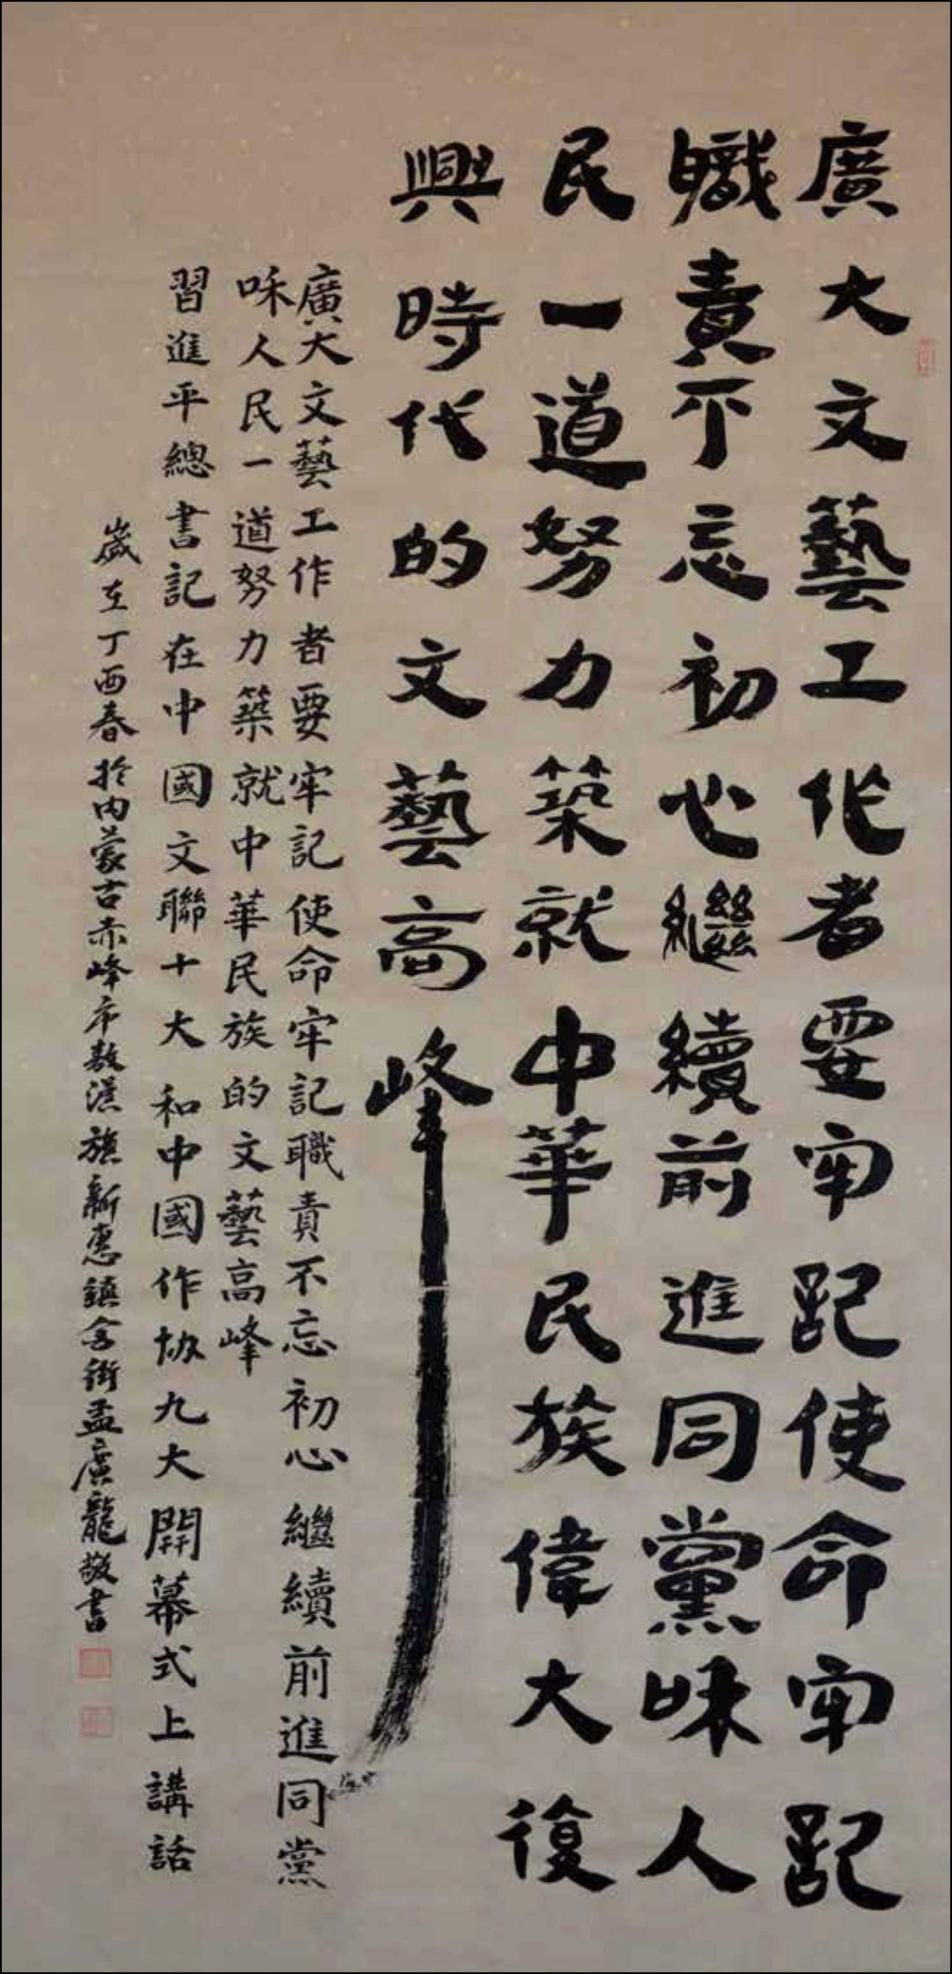 廣大文藝工作者要牢記使命牢記
職責不忘初心繼續前進同黨咊人
民一道努力築就中華民族偉大復
興時代的文藝高峰
廣大文藝工作者要牢記使命牢記職責不忘初心繼續前進同黨
咊人民一道努力築就中華民族的文藝高峰
習進平總書記在中國文聯十大和中國作協九大開幕式上講話
歲在丁酉春於内蒙古赤峰市敖漢旗新惠鎮街孟廣龍敬書